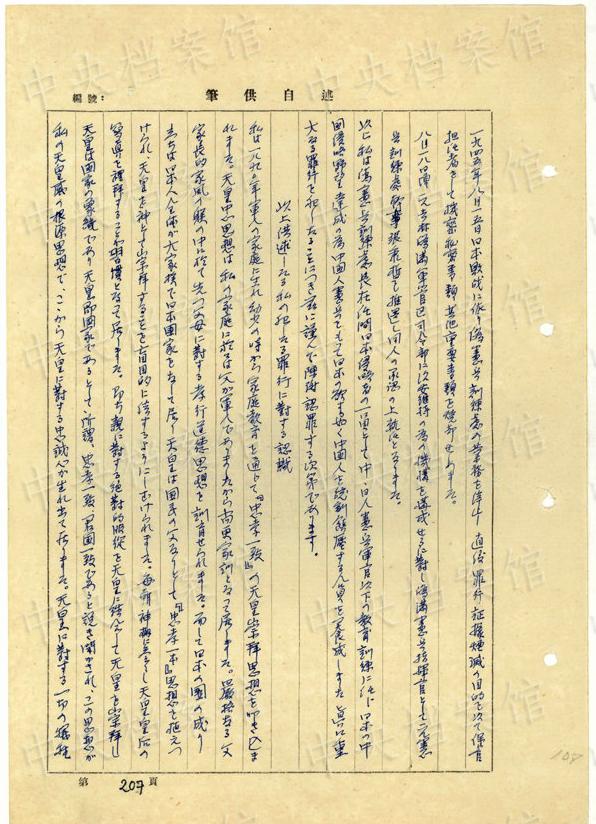 述自供筆
編號：
一九四五年八月一五日日本敗戦に依り偽憲兵訓練處の業務を停止し直後罪行証據煙滅の目的を以て保管
担任者をして機密秘密書類其他重要書類を焼却せしめました。
八月一八日偽一元吉林偽満軍管区司令部に治安維持の為の機構を構成せるに對し偽満憲兵指揮官として元憲
兵訓練處幹事張 を推選し同人の承認の上就任となる。
以上私は偽憲兵訓練處長在任間日本侵略者の一員として中、日人憲兵軍官以下の教育訓練に任じ日本の中
国侵略野望達成の為中国人憲兵をもて日本の欲する如く中国人を統制鎮壓する人員を養成しました真に重
大なる罪行を犯したることにつき茲に謹んで陳謝認罪する次第であります。
以上供述したる私の犯したる罪行に對する認識
私は一八九 年軍人の家庭に生れ幼少の時から家庭教育を通じて『忠孝一致』の天皇崇拝思想を叩き込ま
れました。天皇中心思想は私の家庭に於ては父が軍人でありましたから尚更家訓となって居りました。嚴格なる父
家長的家風の躾の中に於て先づ父母に對する孝行道徳思想を訓育せられました。而して日本の國の成り
立ちは日本人全体が大家族で日本国家をなして居り天皇は国民の父なりとして『忠孝一本』思想を植えつ
けられ、天皇を神として崇拝することを盲目的に信ずるようにしむけられました。毎朝神棚に 天皇皇后の
写真を禮拝することが習慣となって居りました。即ち親に對する絶對的服従を天皇に結んで天皇を崇拝し
天皇は国家の象徴であり天皇即国家であるとして、所謂、忠孝一致、君国一致であると説き聞かされ、この思想が
私の天皇観の根源思想で、ここから天皇に對する忠誠心が生れ出て居りました。天皇に對する一切の犠牲
第 207 頁
108
中央档案馆